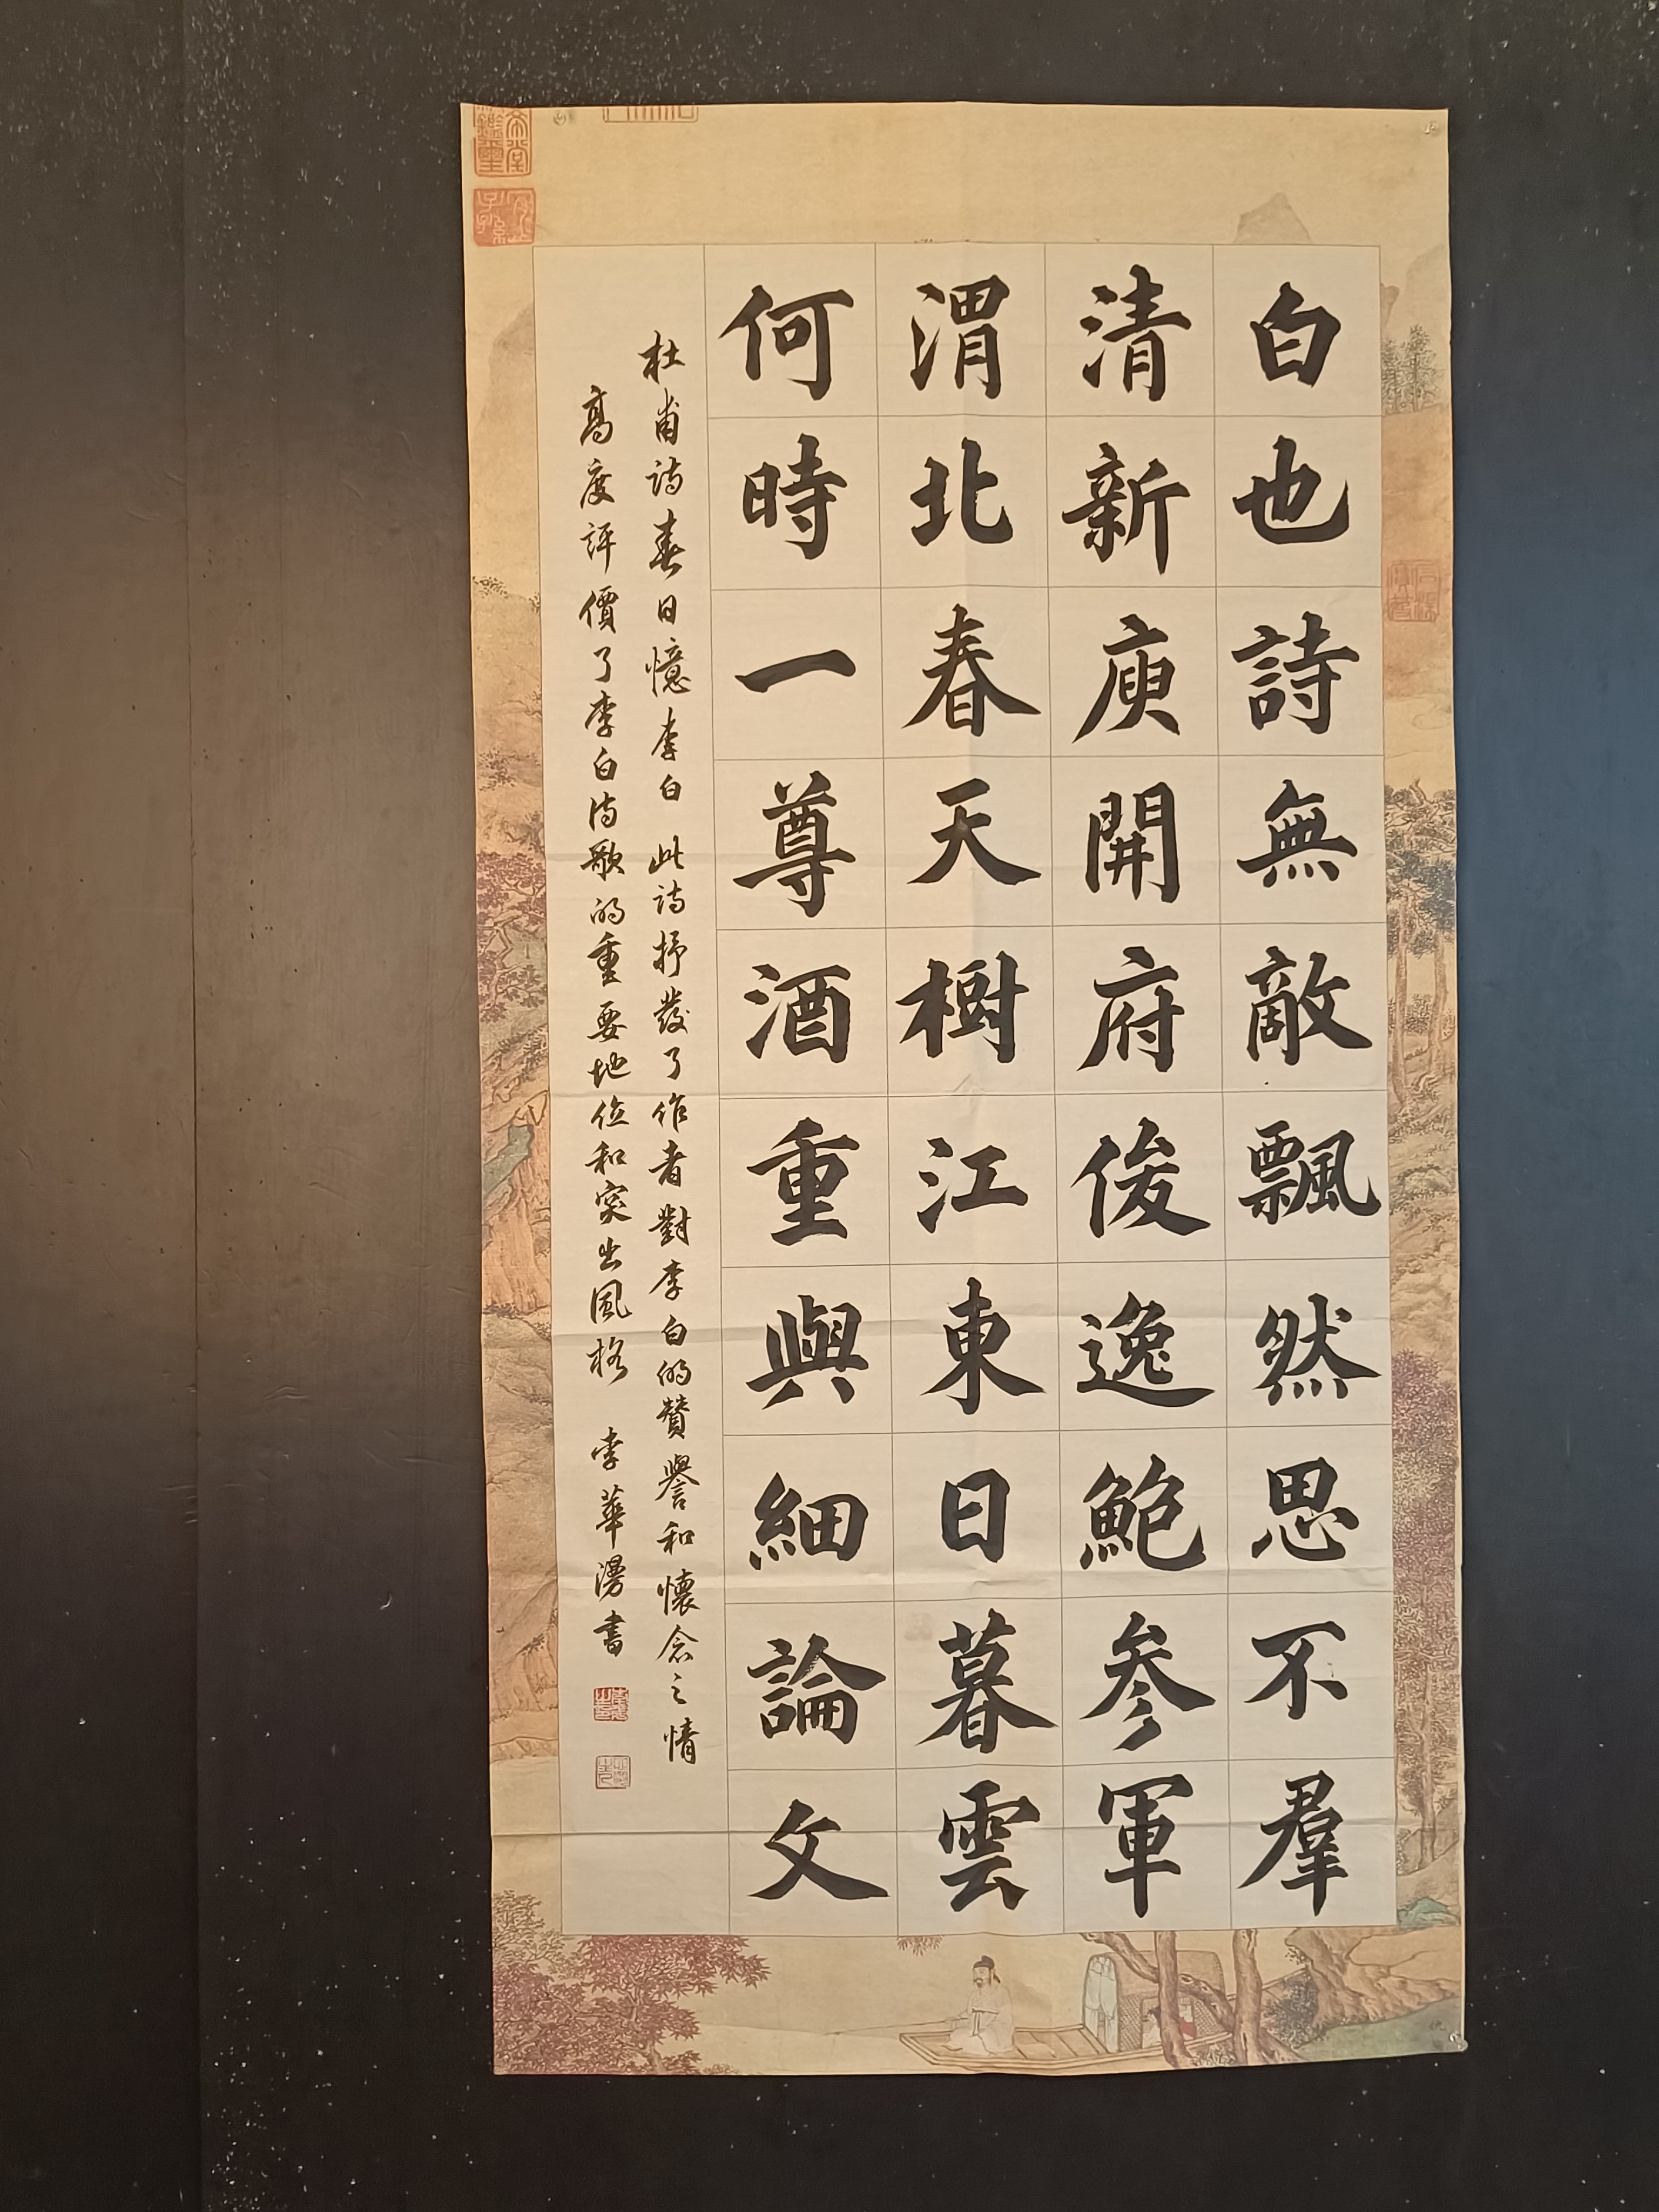 白也詩無敵飄然思不羣
清新庾開府俊逸鮑參軍
渭北春天樹江東日暮雲
何時一尊酒重與細論文
杜甫詩春日憶李白此詩抒發了作者對李白的贊譽和懷念之情
高度評價了李白詩歌的重要地位和突出風格 李華漫書